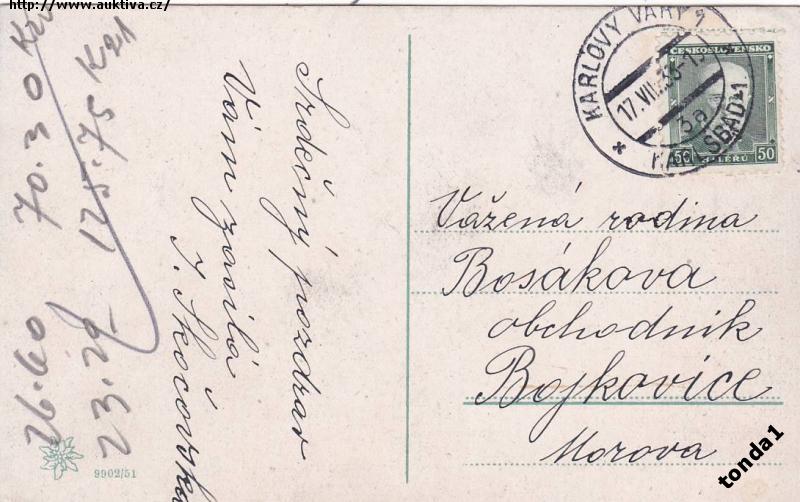 http://www.auktiva.cz/
70.30 Kč
125.75 K21
26.60
23.20
Srdečný pozdrav
Vám zasílá
J. Škocovská
KARLOVY VARY 1
17.VII.33-1
3a
* KARLSBAD 1
ČESKOSLOVENSKO
50 HALÉŘŮ 50
Vážená rodina
Bosákova
obchodník
Bojkovice
Morava
9902/51
tonda1